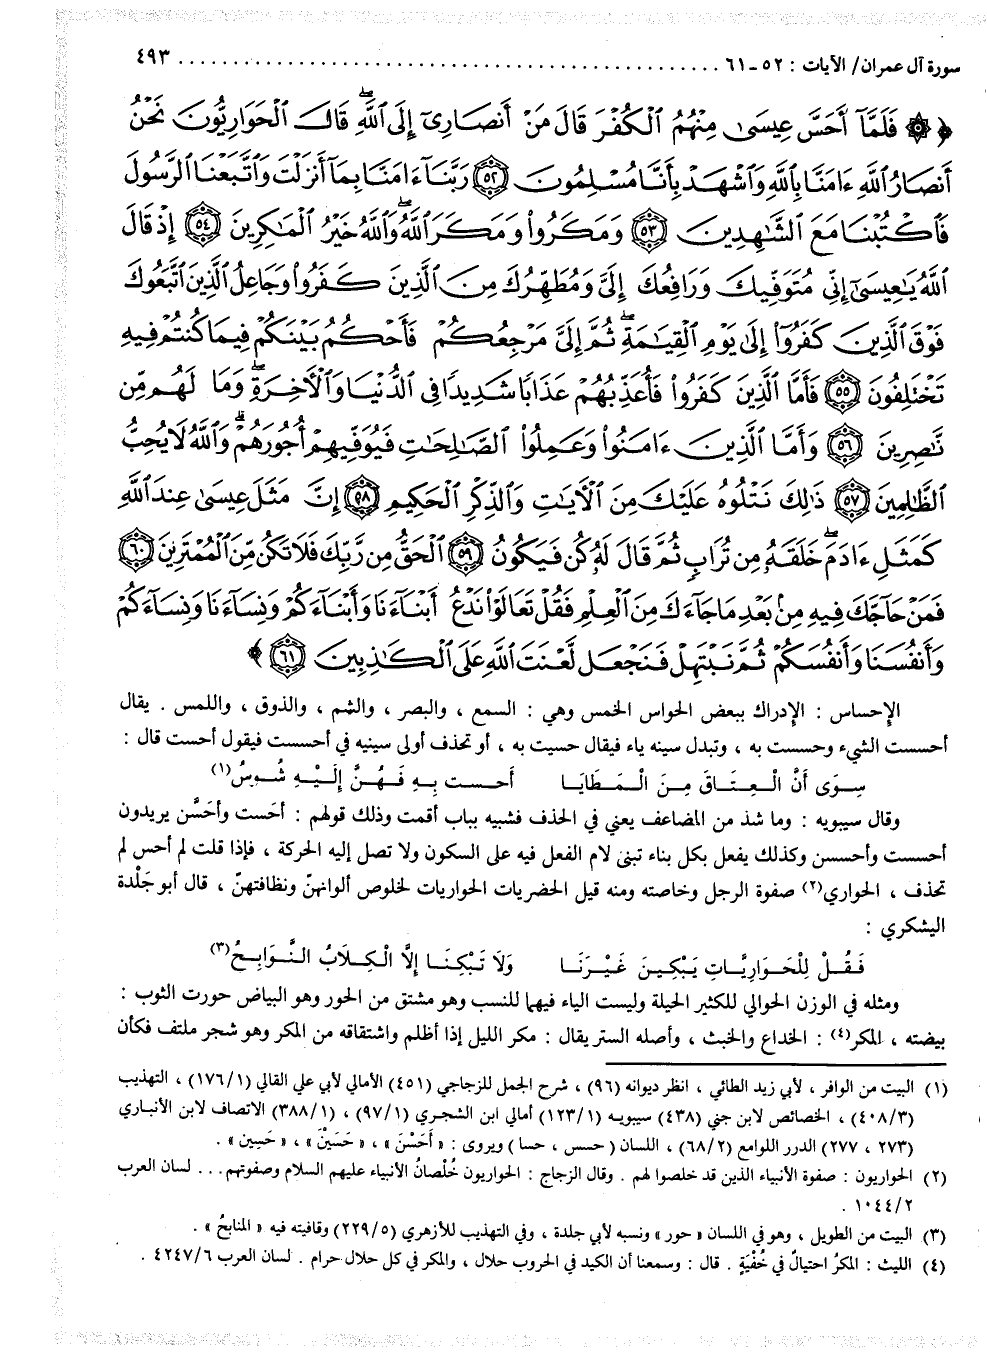 سورة آل عمران/ الآيات : ٥٢ـ٦١ ............................................ ٤٩٣
﴿ ۞ فَلَمَّآ أَحَسَّ عِيسَى مِنْهُمُ الْكُفْرَ قَالَ مَنْ أَنصَارِىٓ إِلَى اللَّهِ ۖ قَالَ الْحَوَارِيُّونَ نَحْنُ
أَنصَارُ اللَّهِ ءَامَنَّا بِاللَّهِ وَاشْهَدْ بِأَنَّا مُسْلِمُونَ ٥٢ رَبَّنَآ ءَامَنَّا بِمَآ أَنزَلْتَ وَاتَّبَعْنَا الرَّسُولَ
فَاكْتُبْنَا مَعَ الشَّاهِدِينَ ٥٣ وَمَكَرُوا۟ وَمَكَرَ اللَّهُ ۖ وَاللَّهُ خَيْرُ الْمَاكِرِينَ ٥٤ إِذْ قَالَ
اللَّهُ يَاعِيسَىٓ إِنِّى مُتَوَفِّيكَ وَرَافِعُكَ إِلَىَّ وَمُطَهِّرُكَ مِنَ الَّذِينَ كَفَرُوا۟ وَجَاعِلُ الَّذِينَ اتَّبَعُوكَ
فَوْقَ الَّذِينَ كَفَرُوٓا۟ إِلَىٰ يَوْمِ الْقِيَامَةِ ۖ ثُمَّ إِلَىَّ مَرْجِعُكُمْ فَأَحْكُمُ بَيْنَكُمْ فِيمَا كُنتُمْ فِيهِ
تَخْتَلِفُونَ ٥٥ فَأَمَّا الَّذِينَ كَفَرُوا۟ فَأُعَذِّبُهُمْ عَذَابًا شَدِيدًا فِى الدُّنْيَا وَالْآخِرَةِ ۖ وَمَا لَهُم مِّن
نَّاصِرِينَ ٥٦ وَأَمَّا الَّذِينَ ءَامَنُوا۟ وَعَمِلُوا۟ الصَّالِحَاتِ فَيُوَفِّيهِمْ أُجُورَهُمْ ۗ وَاللَّهُ لَا يُحِبُّ
الظَّالِمِينَ ٥٧ ذَالِكَ نَتْلُوهُ عَلَيْكَ مِنَ الْآيَاتِ وَالذِّكْرِ الْحَكِيمِ ٥٨ إِنَّ مَثَلَ عِيسَىٰ عِندَ اللَّهِ
كَمَثَلِ ءَادَمَ ۖ خَلَقَهُۥ مِن تُرَابٍ ثُمَّ قَالَ لَهُۥ كُن فَيَكُونُ ٥٩ الْحَقُّ مِن رَّبِّكَ فَلَا تَكُن مِّنَ الْمُمْتَرِينَ ٦٠
فَمَنْ حَآجَّكَ فِيهِ مِنۢ بَعْدِ مَا جَآءَكَ مِنَ الْعِلْمِ فَقُلْ تَعَالَوْا۟ نَدْعُ أَبْنَآءَنَا وَأَبْنَآءَكُمْ وَنِسَآءَنَا وَنِسَآءَكُمْ
وَأَنفُسَنَا وَأَنفُسَكُمْ ثُمَّ نَبْتَهِلْ فَنَجْعَل لَّعْنَتَ اللَّهِ عَلَى الْكَاذِبِينَ ٦١ ﴾
الإحساس : الإدراك ببعض الحواس الخمس وهي : السمع ، والبصر ، والشم ، والذوق ، واللمس . يقال
أحسست الشيء وحسست به ، وتبدل سينه ياء فيقال حسيت به ، أو تحذف أولى سينيه في أحسست فيقول أحست قال :
سِوَى أَنَّ الْعِتَاقَ مِنَ الْمَطَايَا أَحست بِهِ فَهُنَّ إِلَيْهِ شُوسُ(١)
وقال سيبويه : وما شذ من المضاعف يعني في الحذف فشبيه بباب أقمت وذلك قولهم : أحَست وأحَسَّن يريدون
أحسست وأحسسن وكذلك يفعل بكل بناء تبنى لام الفعل فيه على السكون ولا تصل إليه الحركة ، فإذا قلت لم أحس لم
تحذف ، الحواري(٢) صفوة الرجل وخاصته ومنه قيل الحضريات الحواريات لخلوص ألوانهنّ ونظافتهنّ ، قال أبو جَلْدة
اليشكري :
فَقُلْ لِلْحَوَارِيَّاتِ يَبْكِينَ غَيْرَنَا وَلَا تَبْكِنَا إِلَّا الْكِلَابُ النَّوَابِحُ(٣)
ومثله في الوزن الحوالي للكثير الحيلة وليست الياء فيهما للنسب وهو مشتق من الحور وهو البياض حورت الثوب :
بيضته ، المكر(٤) : الخداع والخبث ، وأصله الستر يقال : مكر الليل إذا أظلم واشتقاقه من المكر وهو شجر ملتف فكأن
(١) البيت من الوافر ، لأبي زيد الطائي ، انظر ديوانه (٩٦) ، شرح الجمل للزجاجي (٤٥١) الأمالي لأبي علي القالي (١/١٧٦) ، التهذيب
(٣/٤٠٨) ، الخصائص لابن جني (٤٣٨) سيبويه (١/١٢٣) أمالي ابن الشجري (١/٩٧) ، (١/٣٨٨) الاتصاف لابن الأنباري
(٢٧٣ ، ٢٧٧) الدرر اللوامع (٢/٦٨) ، اللسان ( حسس ، حسا ) ويروى : « أَحَسْنَ » ، « حَسَيْنَ » ، « حَسِين » .
(٢) الحواريون : صفوة الأنبياء الذين قد خلصوا لهم . وقال الزجاج : الحواريون خُلْصانُ الأنبياء عليهم السلام وصفوتهم . . . لسان العرب
٢/١٠٤٤ .
(٣) البيت من الطويل ، وهو في اللسان « حور » ونسبه لأبي جلدة ، وفي التهذيب للأزهري (٥/٢٢٩) وقافيته فيه « المنابحُ » .
(٤) الليث : المكرُ احتيالٌ في خُفْيَةٍ . قال : وسمعنا أن الكيد في الحروب حلال ، والمكر في كل حلال حرام . لسان العرب ٦/٤٢٤٧ .